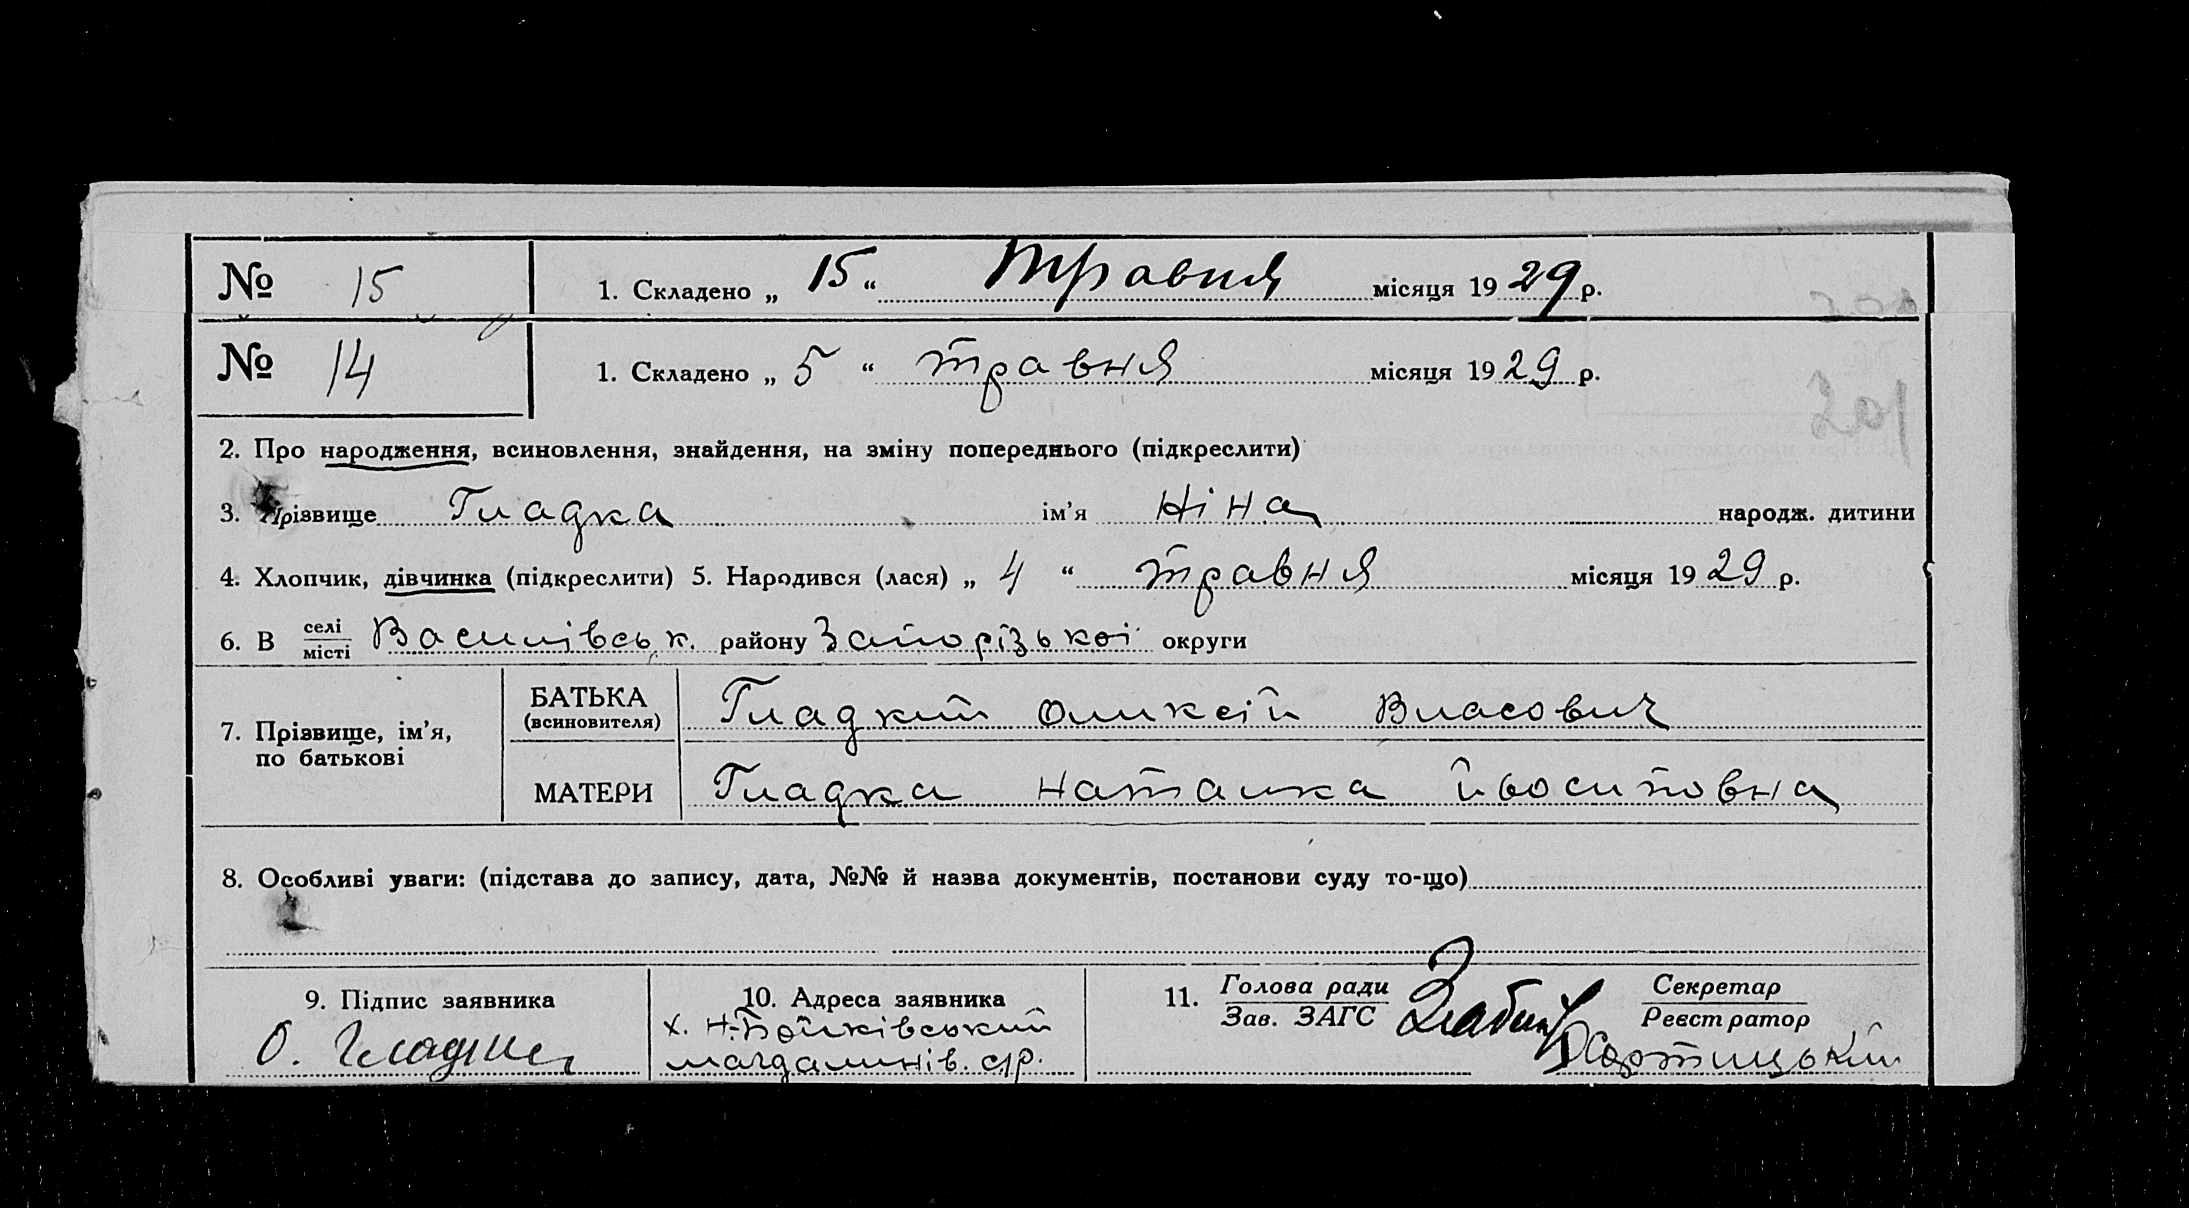 № 15 1. Складено „ 15 “ Травня місяця 1929 р.
№ 14 1. Складено „ 5 “ травня місяця 1929 р.
2. Про народження, всиновлення, знайдення, на зміну попереднього (підкреслити)
3. Прізвище Гладка ім’я Ніна народж. дитини
4. Хлопчик, дівчинка (підкреслити) 5. Народився (лася) „ 4 “ травня місяця 1929 р.
6. В селі місті Василівськ. району Запорізької округи
7. Прізвище, ім’я, по батькові
БАТЬКА (всиновителя) Гладкий Оликсій Власович
МАТЕРИ Гладка Наталка Йьосиповна
8. Особливі уваги: (підстава до запису, дата, №№ й назва документів, постанови суду то-що)
9. Підпис заявника
О. Гладкий
10. Адреса заявника
х. Н-Бойківський
магдалинів. с/р.
11. Голова ради Зав. ЗАГС
Секретар Реєстратор
Хортицький